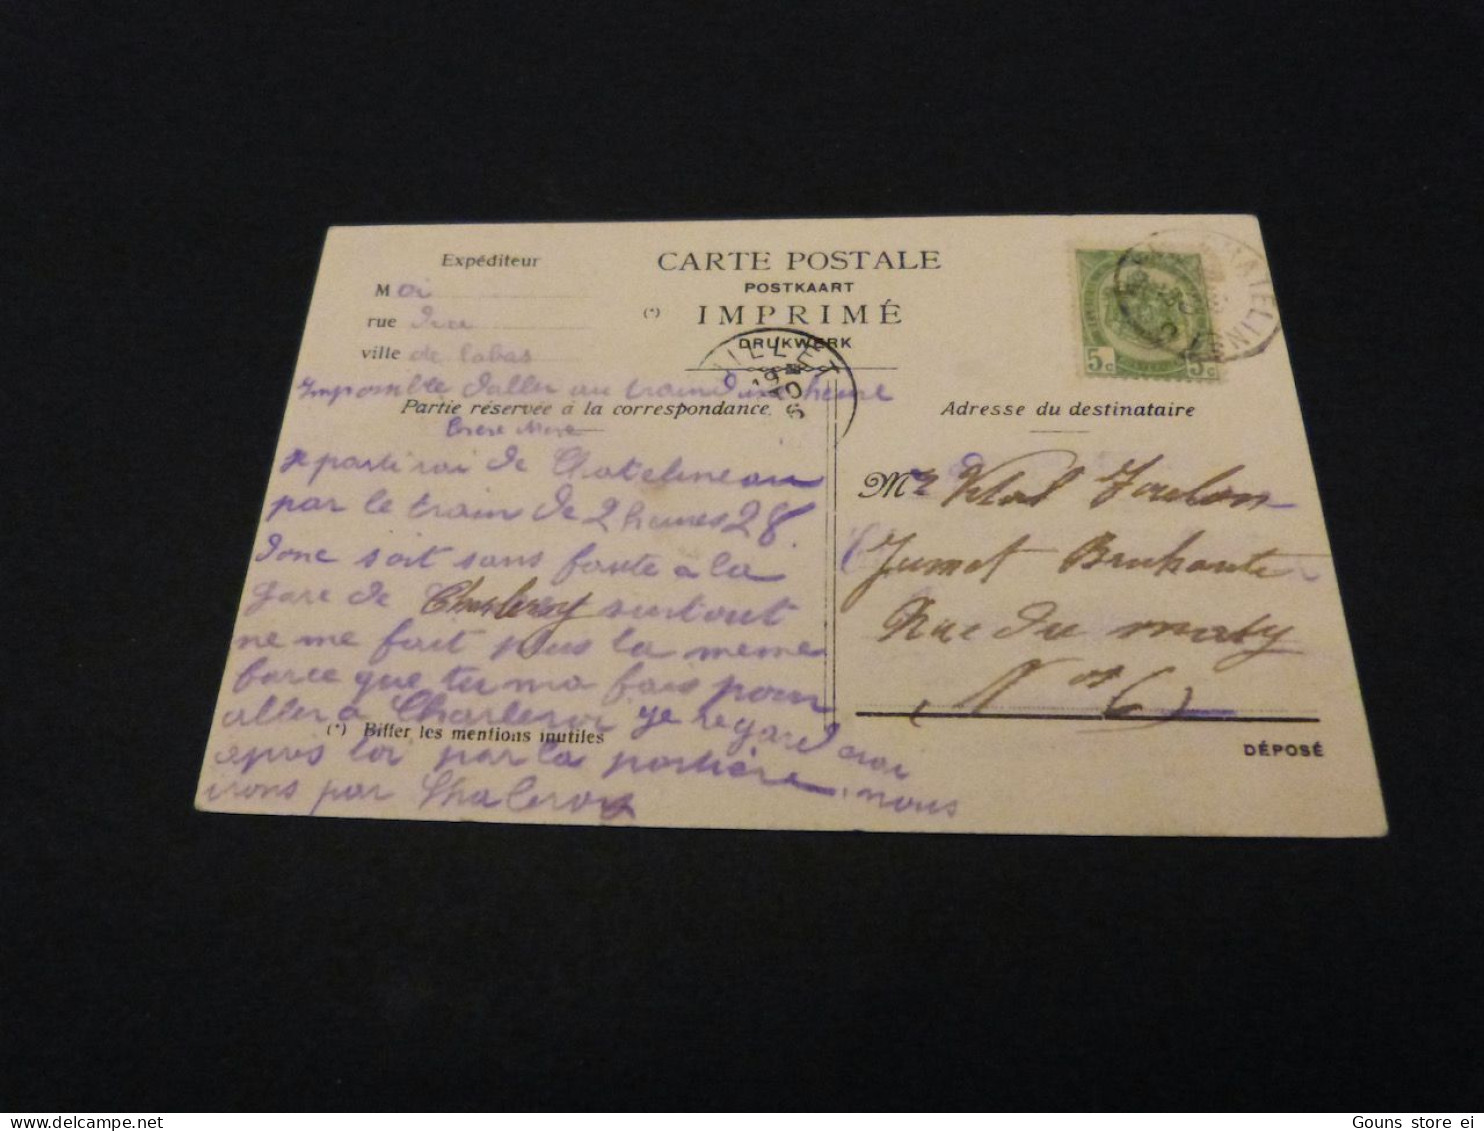 Expéditeur
Moi
rue
ville de labas
CARTE POSTALE
POSTKAART
(*) IMPRIMÉ
DRUKWERK
JUILLET
5c 5c
CHATELIN
Impossible daller au train d'une heure
Partie réservée à la correspondance
je partirai de Chatelineau
par le train de 2 heures 28.
donc soit sans faute a la
gare de Charleroy surtout
ne me fait plus la meme
farce que tu ma fais pour
aller a Charleroi je regarderai
(*) Biffer les mentions inutiles
apres toi par la portière, nous
irons par Chaleroy
Adresse du destinataire
Mr Vital Toulon
Jumet Bruhaute
Rue du
(Nos 6)
DÉPOSÉ
Gouns store ei